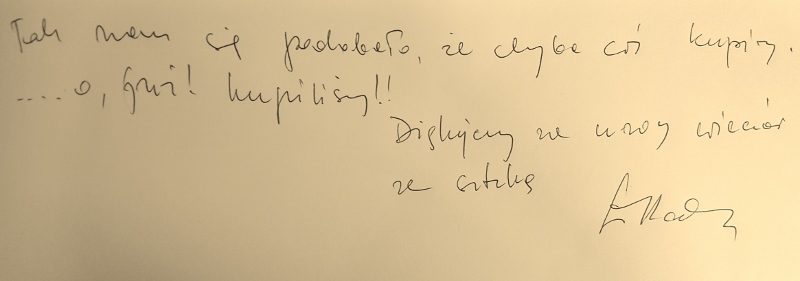 Tak nam się podobało, że chyba coś kupimy.
.... o, już! kupiliśmy!!
Dziękujemy za uroczy wieczór
ze sztuką